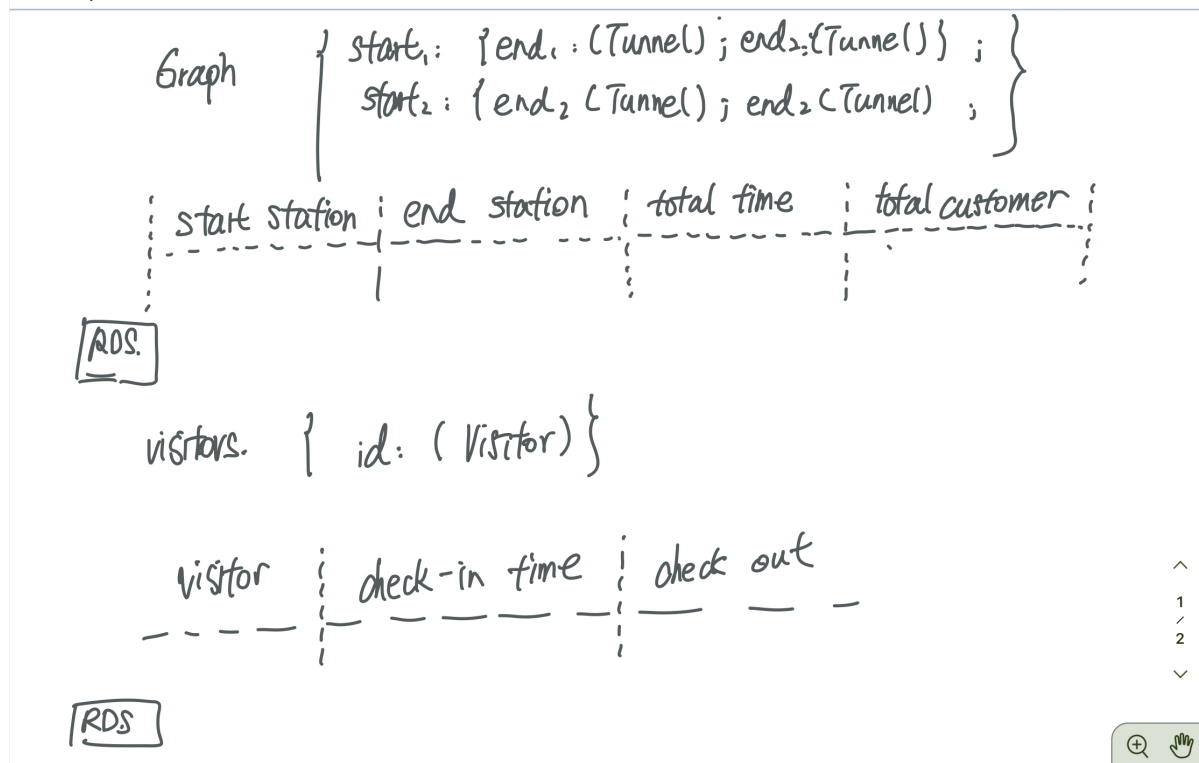 Graph { start₁: {end₁ : (Tunnel) ; end₂:(Tunnel)} ;
start₂ : { end₂ (Tunnel) ; end₂ (Tunnel) ; }
start station end station total time total customer
RDS.
visitors. { id: (Visitor) }
visitor check-in time check out
1
/
2
RDS